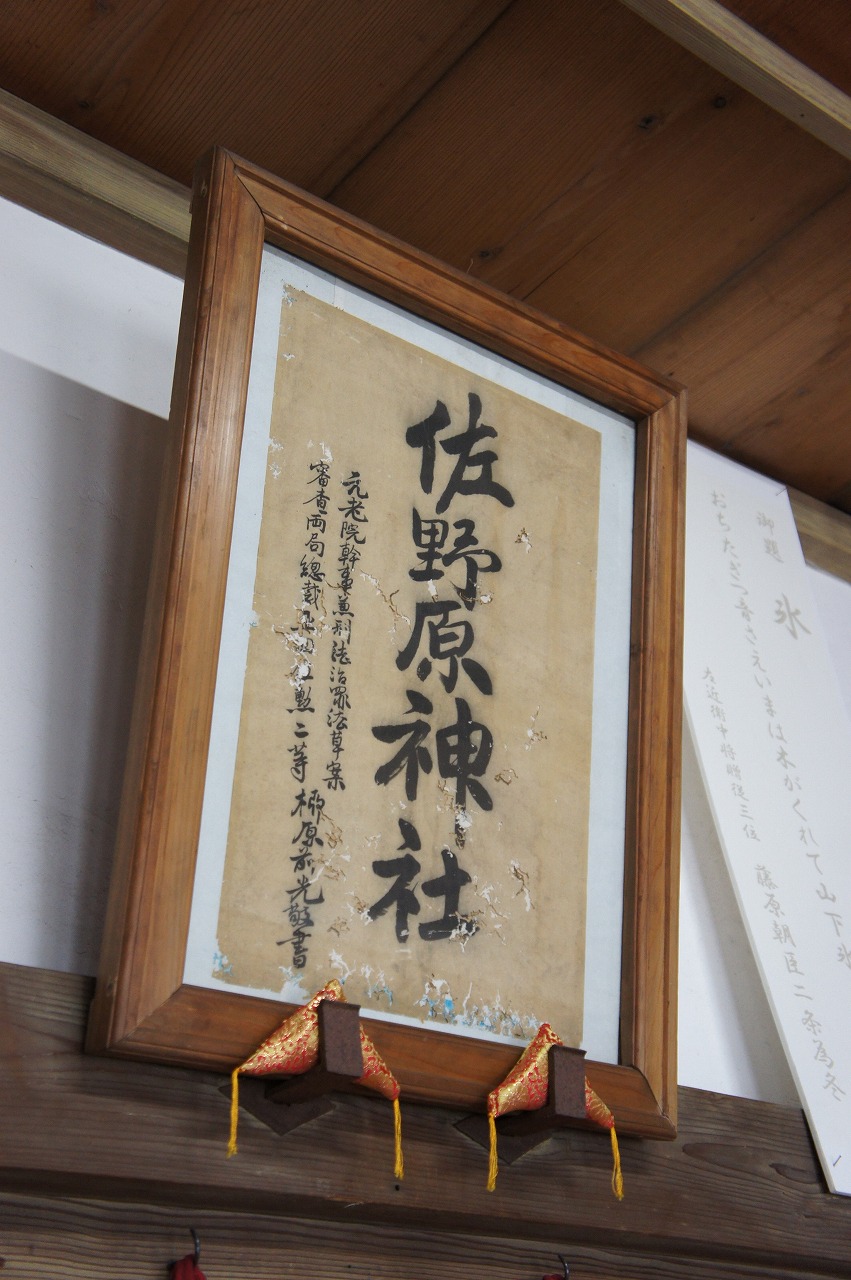 佐野原神社
元老院幹事兼刑法治罪法草案
審査両局總裁 勲二等 柳原前光敬書
御題
氷
おちたぎつ音さえいまは木がくれて山下氷
左近衛中将贈従三位 藤原朝臣二条為冬